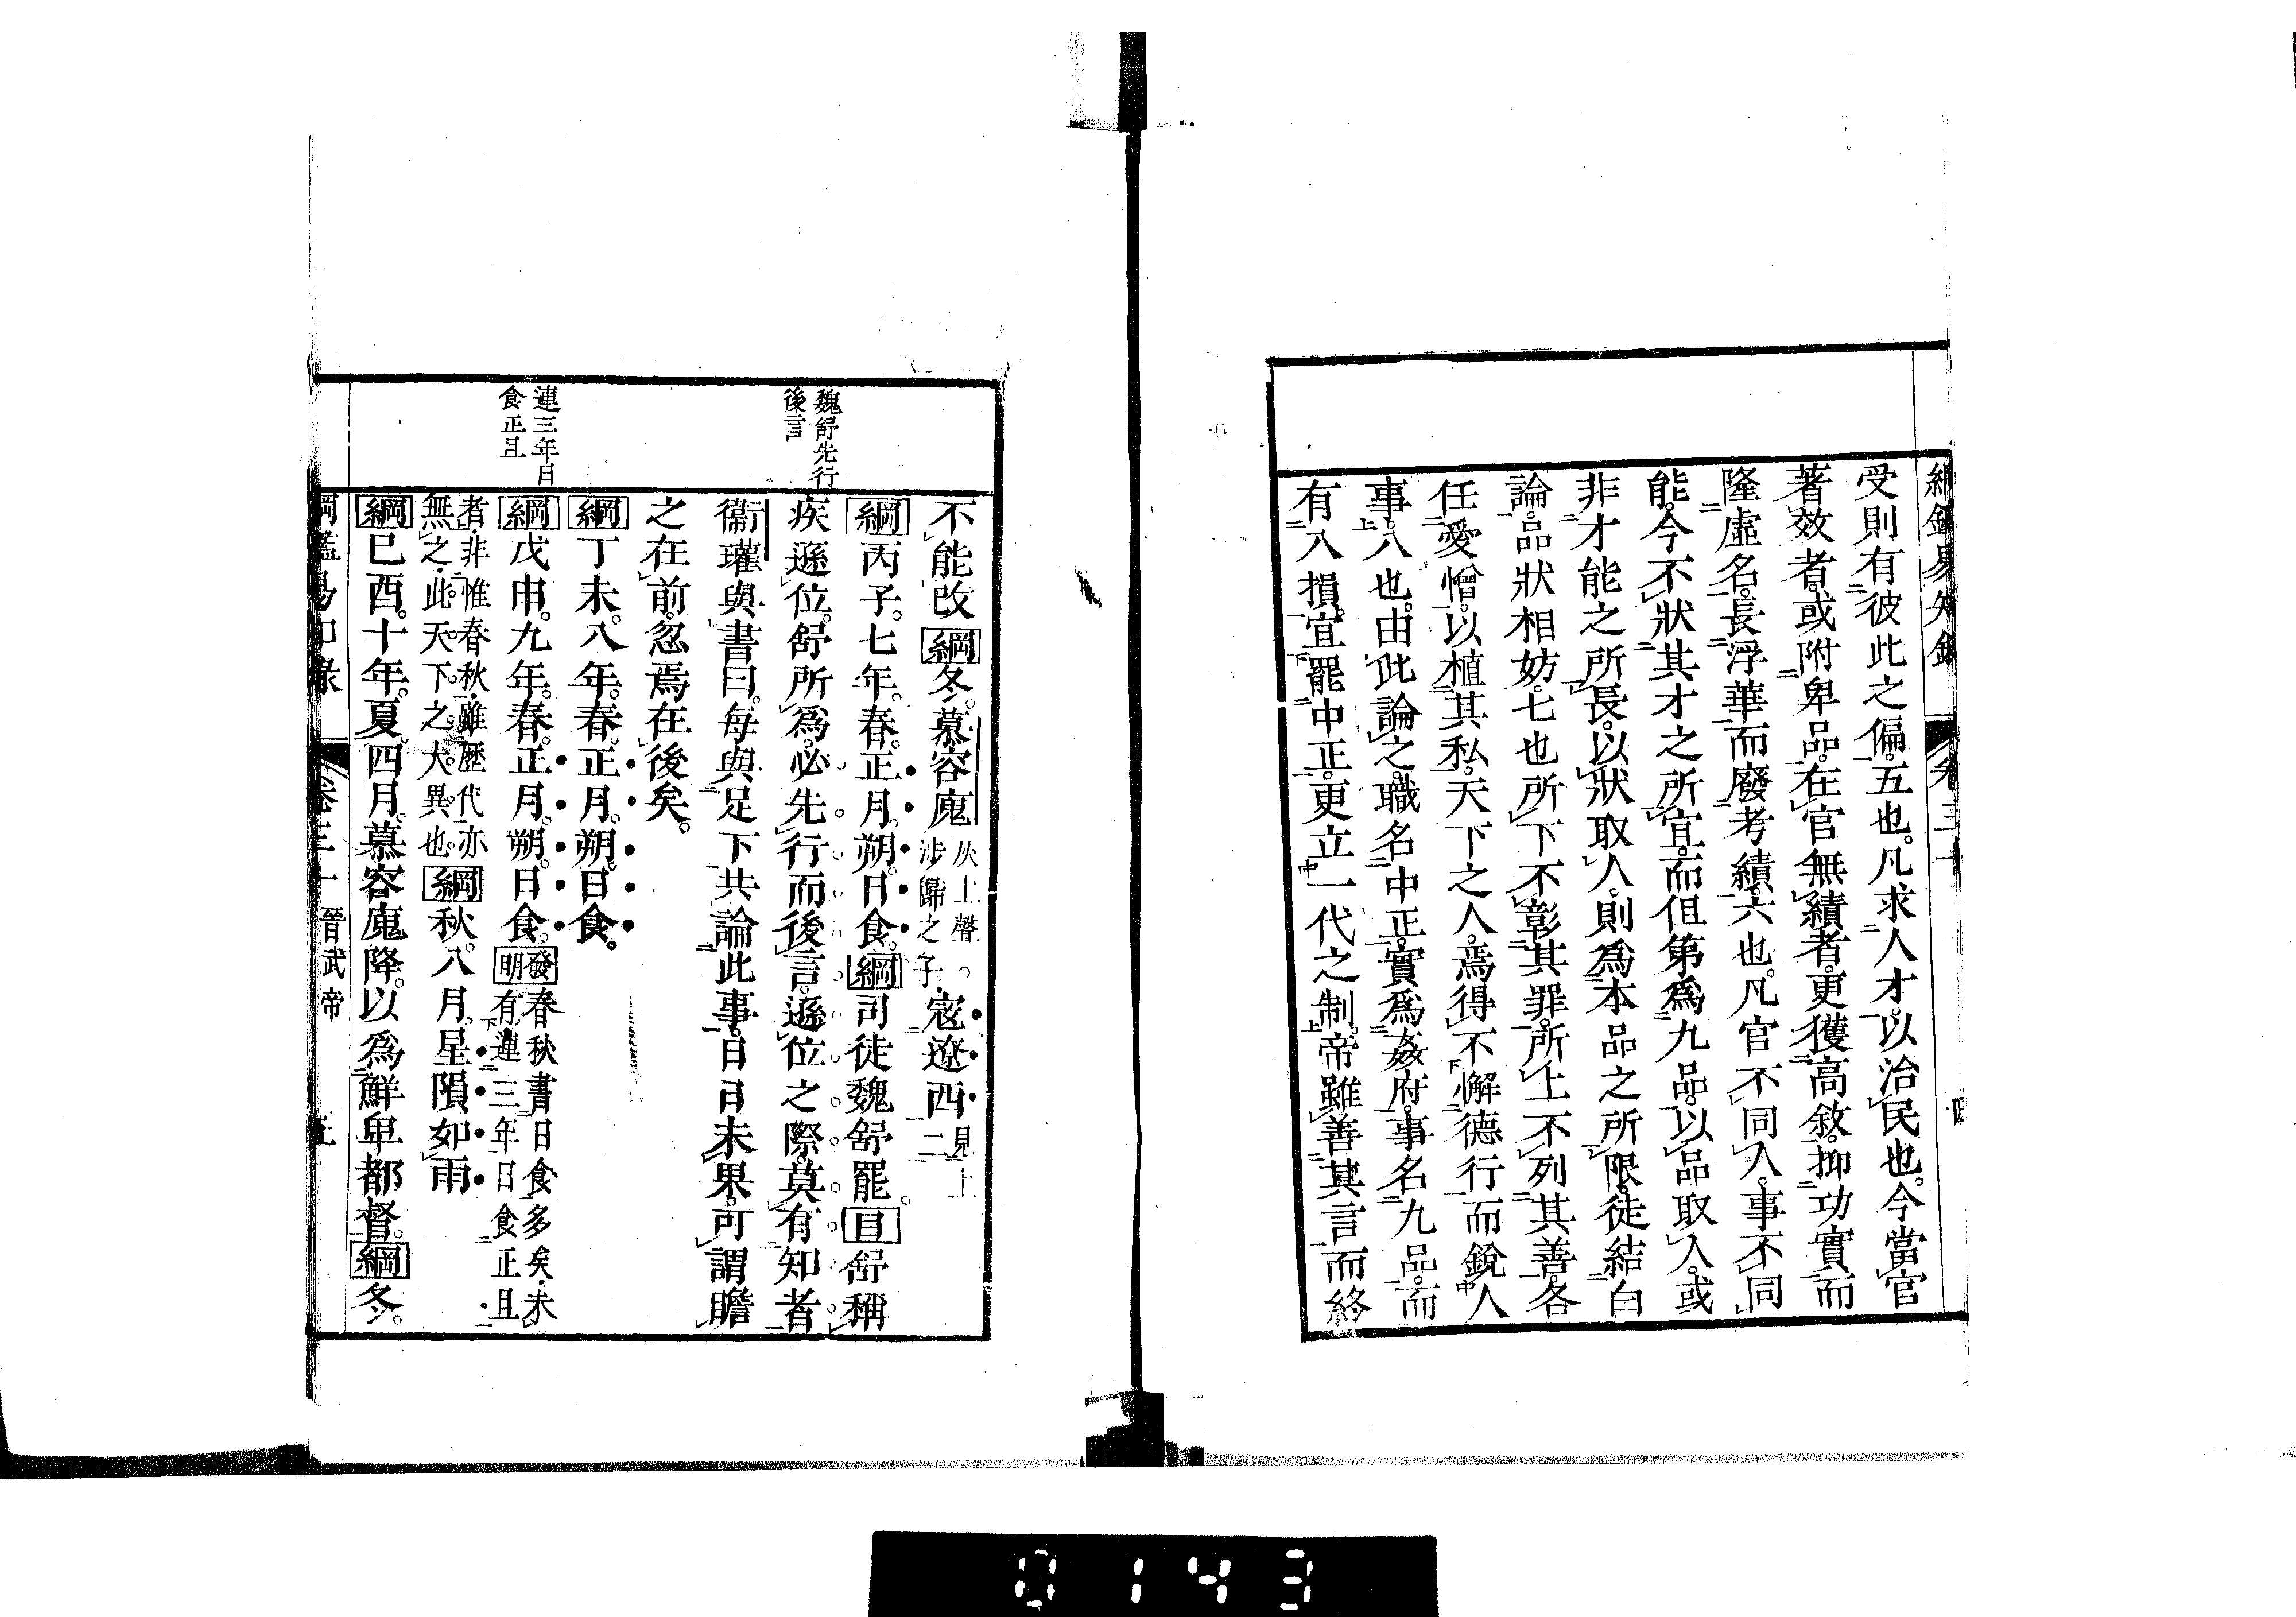 綱鑑易知錄 卷三十 四
受則有彼此之偏。五也。凡求人才。以治民也。今當官
著效者。或附卑品。在官無績者。更獲高敘。抑功實而
隆虛名。長浮華而廢考績。六也。凡官不同人。事不同
能。今不狀其才之所宜。而但第爲九品。以品取人。或
非才能之所長。以狀取人。則爲本品之所限。徒結白
論。品狀相妨。七也。所下不彰其罪。所上不列其善。各
任愛憎。以植其私。天下之人。焉得不懈德行而銳人
事。八也。由此論之。職名中正。實爲姦府。事名九品。而
有八損。宜罷中正。更立一代之制。帝雖善其言。而終
不能改綱冬。慕容廆灰上聲。涉歸之子。寇遼西見上二
綱丙子。七年。春。正月。朔。日食。綱司徒魏舒罷。目舒稱
魏舒先行
後言
疾遜位。舒所爲。必先行而後言。遜位之際。莫有知者
衞瓘與書曰。每與足下共論此事。日日未果。可謂瞻
之在前。忽焉在後矣。
綱丁未。八年。春。正月。朔。日食。
連三年日
食正旦
綱戊申。九年。春。正月。朔。日食。發明春秋書日食多矣。未有連三年日食正旦
者。非惟春秋。雖歷代亦無之。此天下之大異也。綱秋。八月。星隕如雨
綱己酉。十年。夏。四月。慕容廆降。以爲鮮卑都督。綱冬。
綱鑑易知錄 卷三十 晉武帝 五
0143